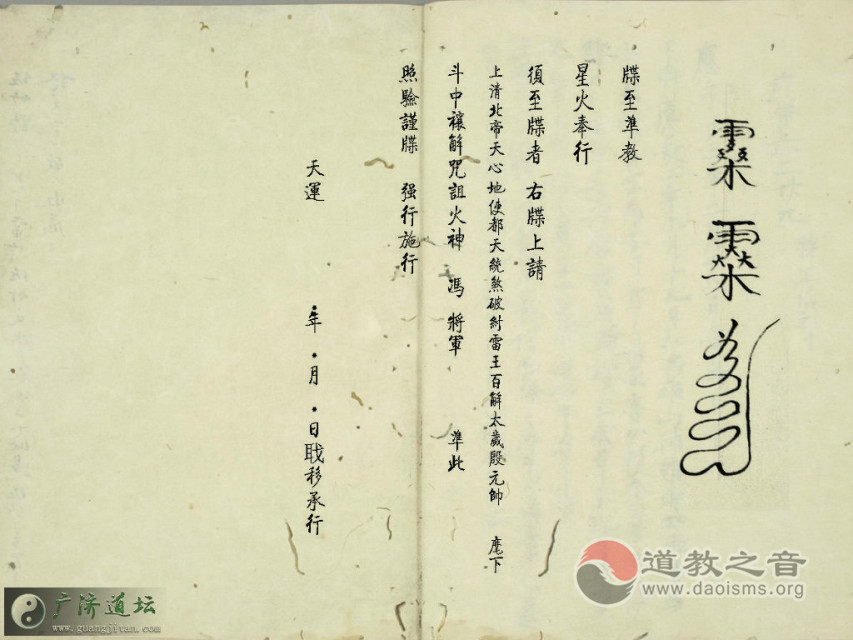 牒至準教
星火奉行
須至牒者 右牒上請
上清北帝天心地使都天統煞破紂雷王百解太歲殷元帥 麾下
斗中禳解咒詛火神 馮將軍 準此
照驗謹牒 强行施行
天運 年 月 日 移承行
道教之音
www.daoisms.org
广济道坛
www.guangjitan.com